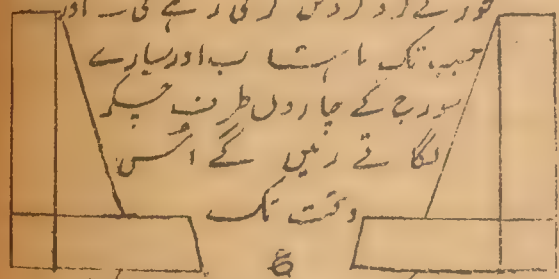 محور کے گرد گردش کرتی رہے گی۔ اور
جب تک ماہتاب اور سیارے
سورج کے چاروں طرف چکر
لگاتے رہیں گے اُس
وقت تک